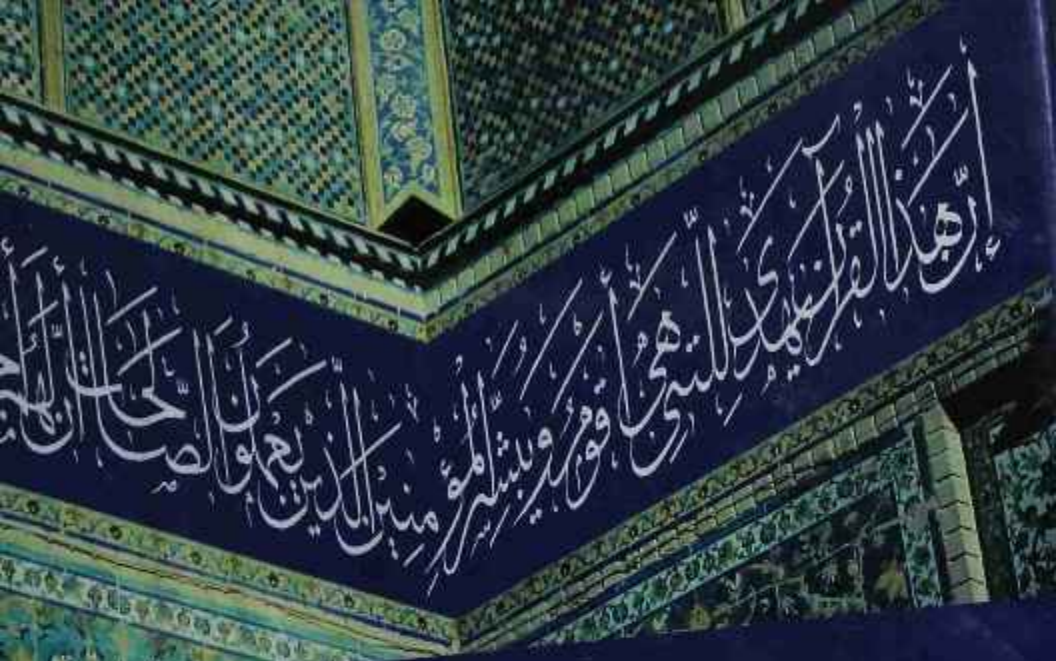 إِنَّ هَٰذَا الْقُرْآنَ يَهْدِي لِلَّتِي هِيَ أَقْوَمُ وَيُبَشِّرُ الْمُؤْمِنِينَ الَّذِينَ يَعْمَلُونَ الصَّالِحَاتِ أَنَّ لَهُمْ